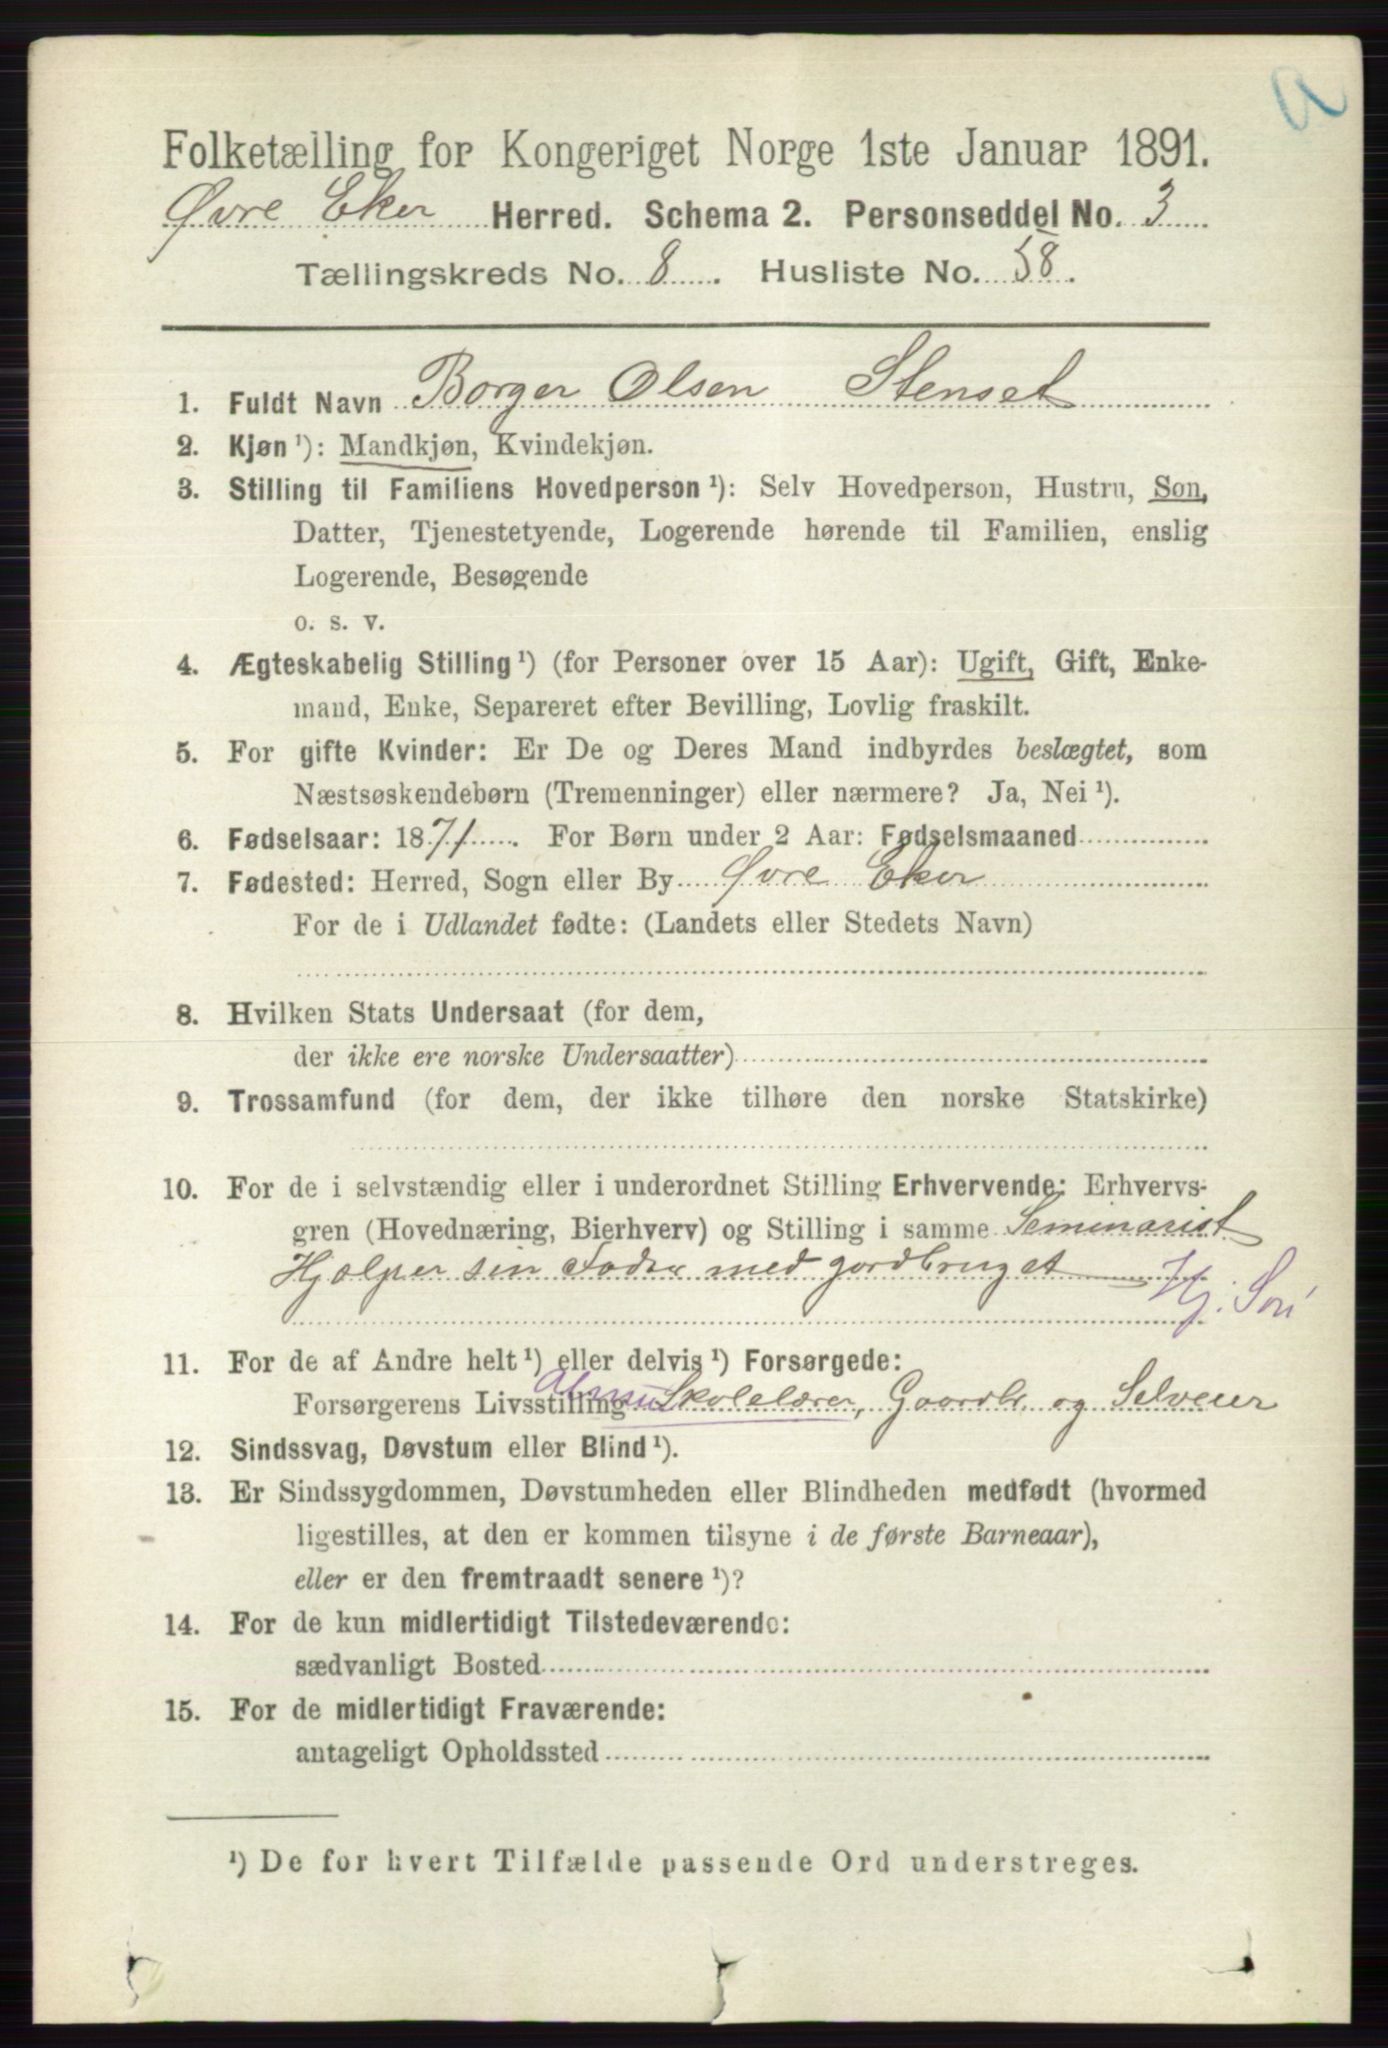 a
Folketælling for Kongeriget Norge 1ste Januar 1891.
Øvre Eker Herred. Schema 2. Personseddel No. 3
Tællingskreds No. 8. Husliste No. 58.
1. Fuldt Navn Borger Olsen Stenset
2. Kjøn ¹): Mandkjøn, Kvindekjøn.
3. Stilling til Familiens Hovedperson ¹): Selv Hovedperson, Hustru, Søn,
Datter, Tjenestetyende, Logerende hørende til Familien, enslig
Logerende, Besøgende
o. s. v.
4. Ægteskabelig Stilling ¹) (for Personer over 15 Aar): Ugift, Gift, Enke-
mand, Enke, Separeret efter Bevilling, Lovlig fraskilt.
5. For gifte Kvinder: Er De og Deres Mand indbyrdes beslægtet, som
Næstsøskendebørn (Tremenninger) eller nærmere? Ja, Nei ¹).
6. Fødselsaar: 1871. For Børn under 2 Aar: Fødselsmaaned
7. Fødested: Herred, Sogn eller By Øvre Eker
For de i Udlandet fødte: (Landets eller Stedets Navn)
8. Hvilken Stats Undersaat (for dem,
der ikke ere norske Undersaatter)
9. Trossamfund (for dem, der ikke tilhøre den norske Statskirke)
10. For de i selvstændig eller i underordnet Stilling Erhvervende: Erhvervs-
gren (Hovednæring, Bierhverv) og Stilling i samme Seminarist
Hjælper sin Fader med gordbruget
Hj. Søn
11. For de af Andre helt ¹) eller delvis ¹) Forsørgede:
Forsørgerens Livsstilling Skolelærer, Gaardb. og Selveier
12. Sindssvag, Døvstum eller Blind ¹).
13. Er Sindssygdommen, Døvstumheden eller Blindheden medfødt (hvormed
ligestilles, at den er kommen tilsyne i de første Barneaar),
eller er den fremtraadt senere ¹)?
14. For de kun midlertidigt Tilstedeværende:
sædvanligt Bosted
15. For de midlertidigt Fraværende:
antageligt Opholdssted
¹) De for hvert Tilfælde passende Ord understreges.